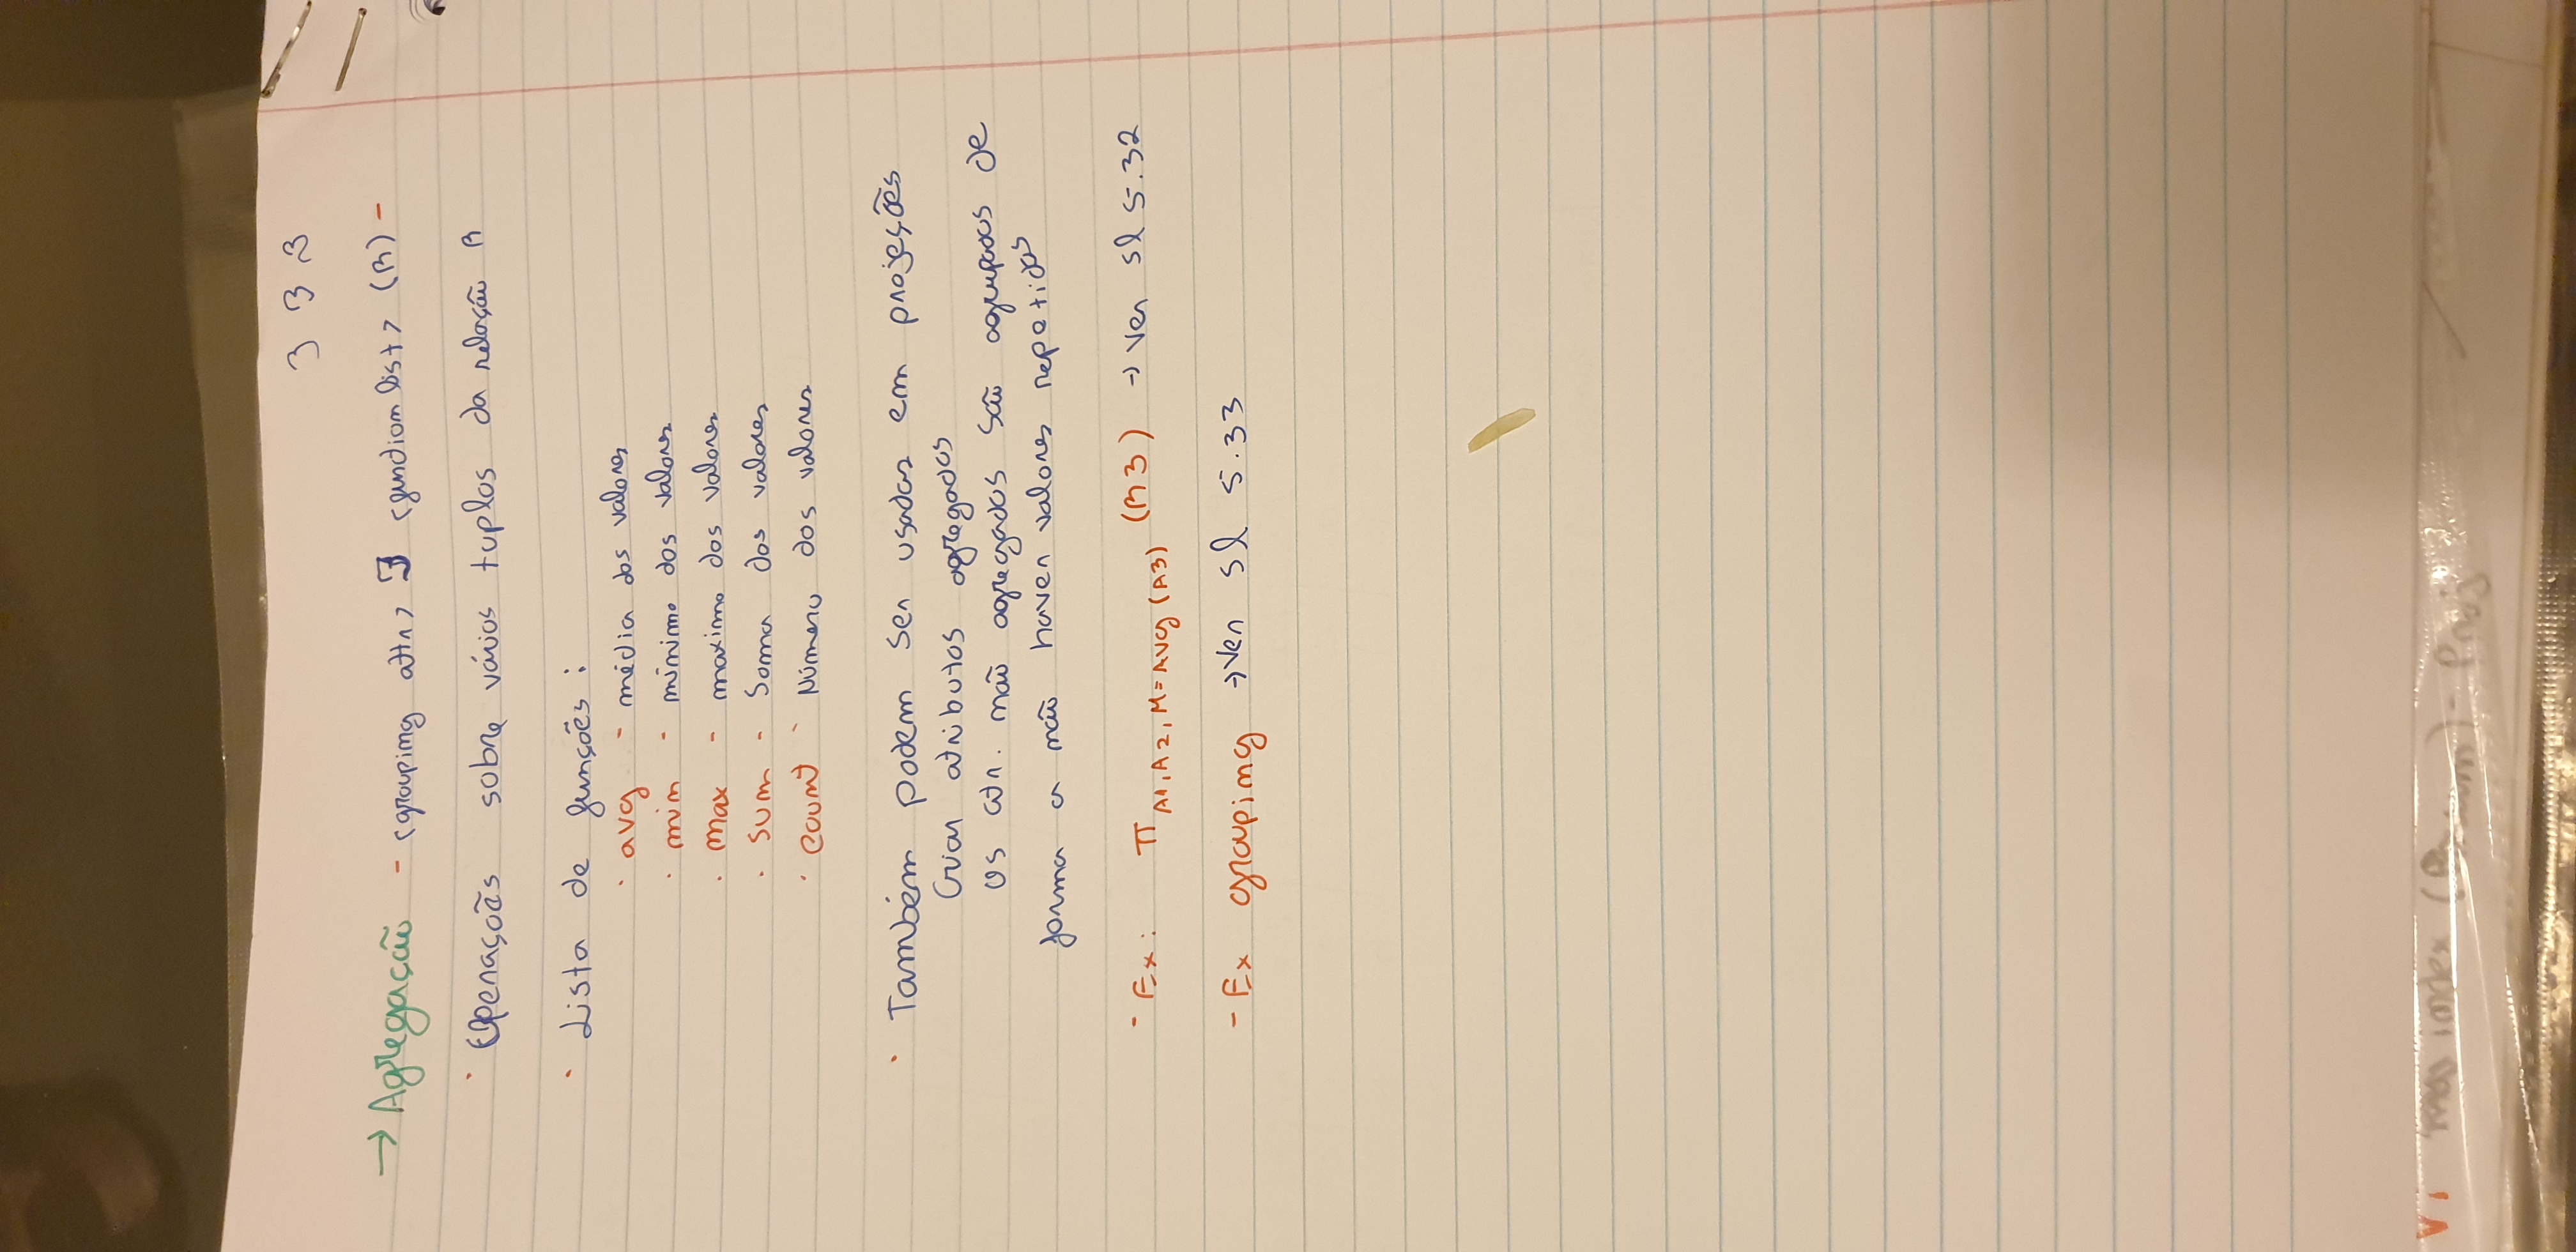 3 3 3
→ Agregação - <grouping attr> ℑ <function list> (R) -
· Operações sobre vários tuplos da relação R
· Lista de funções :
· avg - média dos valores
· min - mínimo dos valores
· max - maximo dos valores
· sum - Soma dos valores
· count - Número dos valores
· Também podem ser usadas em projeções
Criar atributos agregados
Os atr. não agregados são agrupados de
forma a não haver valores repetidos
- Ex : π A1, A2, M = AVG (A3) (R3) → ver sl 5.32
- Ex grouping → ver sl 5.33